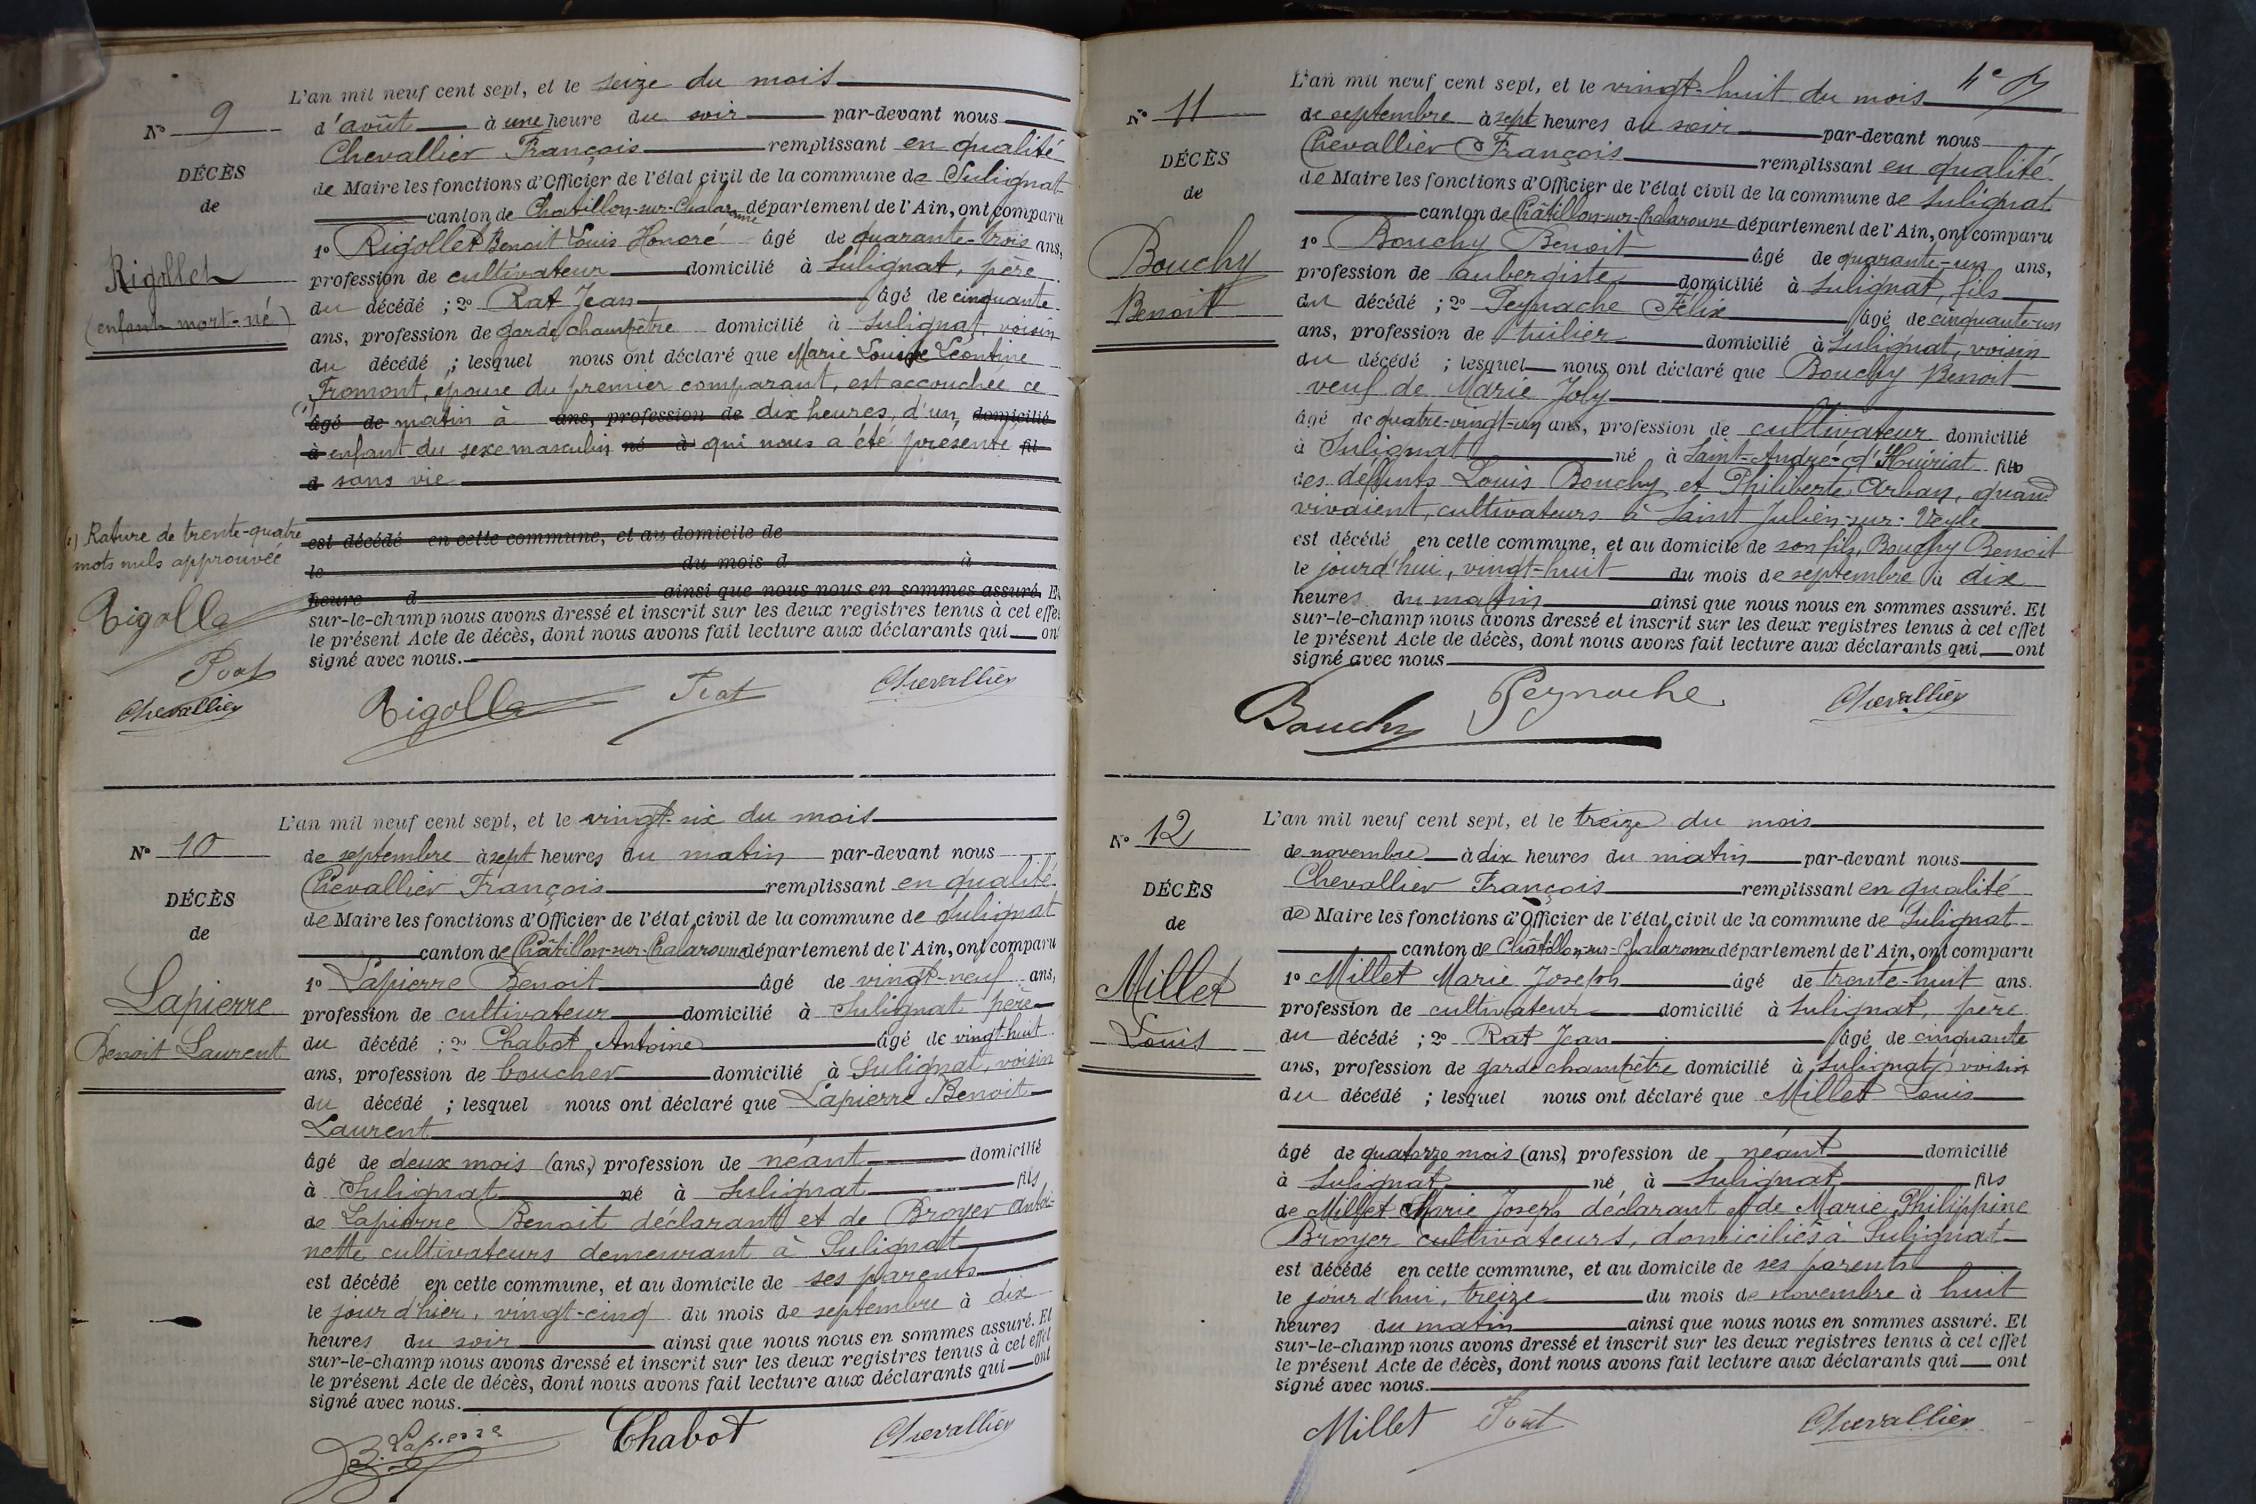 L'an mil neuf cent sept, et le seize du mois
N° 9
d'août à une heure du soir par-devant nous
Chevallier François remplissant en qualité
DÉCÈS
de Maire les fonctions d'Officier de l'état civil de la commune de Sulignat
de
canton de Chatillon-sur-Chalaronne département de l'Ain, ont comparu
1° Rigollet Benoit Louis Honoré âgé de quarante-trois ans,
Rigollet
profession de cultivateur domicilié à Sulignat, père
(enfant mort-né)
du décédé ; 2° Rat Jean âgé de cinquante
ans, profession de garde champêtre domicilié à Sulignat, voisin
du décédé ; lesquel nous ont déclaré que Marie Louise Léontine
Fromont, épouse du premier comparant, est accouchée ce
(1) âgé de matin à ans, profession de dix heures, d'un, domicilié
à enfant du sexe masculin né à qui nous a été présenté fil
d sans vie
(1) Rature de trente-quatre
mots nuls approuvée
est décédé en cette commune, et au domicile de
le du mois d à
heure d ainsi que nous nous en sommes assuré. Et
sur-le-champ nous avons dressé et inscrit sur les deux registres tenus à cet effet
le présent Acte de décès, dont nous avons fait lecture aux déclarants qui ont
signé avec nous.
Rigolle
Rat
Chevallier
Rigolle Rat Chevallier
L'an mil neuf cent sept, et le vingt-six du mois
N° 10
de septembre à sept heures du matin par-devant nous
Chevallier François remplissant en qualité
DÉCÈS
de Maire les fonctions d'Officier de l'état civil de la commune de Sulignat
de
canton de Châtillon-sur-Chalaronne département de l'Ain, ont comparu
1° Lapierre Benoit âgé de vingt-neuf ans,
Lapierre
profession de cultivateur domicilié à Sulignat père
Benoit Laurent
du décédé ; 2° Chabot Antoine âgé de vingt-huit
ans, profession de boucher domicilié à Sulignat, voisin
du décédé ; lesquel nous ont déclaré que Lapierre Benoit
Laurent
âgé de deux mois (ans,) profession de néant domicilié
à Sulignat né à Sulignat fils
de Lapierre Benoit déclarant et de Broyer Antoi-
nette cultivateurs demeurant à Sulignat
est décédé en cette commune, et au domicile de ses parents
le jour d'hier, vingt-cinq du mois de septembre à dix
heures du soir ainsi que nous nous en sommes assuré. Et
sur-le-champ nous avons dressé et inscrit sur les deux registres tenus à cet effet
le présent Acte de décès, dont nous avons fait lecture aux déclarants qui ont
signé avec nous.
B. Lapierre Chabot Chevallier
L'an mil neuf cent sept, et le vingt-huit du mois
N° 11
de septembre à sept heures du soir par-devant nous
Chevallier François remplissant en qualité
DÉCÈS
de Maire les fonctions d'Officier de l'état civil de la commune de Sulignat
de
canton de Châtillon-sur-Chalaronne département de l'Ain, ont comparu
1° Bouchy Benoit âgé de quarante-un ans,
Bouchy
profession de aubergiste domicilié à Sulignat, fils
Benoit
du décédé ; 2° Peynache Félix âgé de cinquante-un
ans, profession de tuilier domicilié à Sulignat, voisin
du décédé ; lesquel nous ont déclaré que Bouchy Benoit
veuf de Marie Joly
âgé de quatre-vingt-un ans, profession de cultivateur domicilié
à Sulignat né à Saint-André-d'Huiriat fils
des défunts Louis Bouchy et Philiberte Arban, quand
vivaient, cultivateurs à Saint Julien-sur-Veyle
est décédé en cette commune, et au domicile de son fils, Bouchy Benoit
le jourd'hui, vingt-huit du mois de septembre à dix
heures du matin ainsi que nous nous en sommes assuré. Et
sur-le-champ nous avons dressé et inscrit sur les deux registres tenus à cet effet
le présent Acte de décès, dont nous avons fait lecture aux déclarants qui ont
signé avec nous
Bouchy Peynache Chevallier
L'an mil neuf cent sept, et le treize du mois
N° 12
de novembre à dix heures du matin par-devant nous
Chevallier François remplissant en qualité
DÉCÈS
de Maire les fonctions d'Officier de l'état civil de la commune de Sulignat
de
canton de Châtillon-sur-Chalaronne département de l'Ain, ont comparu
1° Millet Marie Joseph âgé de trente-huit ans.
Millet
profession de cultivateur domicilié à Sulignat, père
Louis
du décédé ; 2° Rat Jean âgé de cinquante
ans, profession de garde champêtre domicilié à Sulignat, voisin
du décédé ; lesquel nous ont déclaré que Millet Louis
âgé de quatorze mois (ans), profession de néant domicilié
à Sulignat né à Sulignat fils
de Millet Marie Joseph déclarant et de Marie Philippine
Broyer cultivateurs, domiciliés à Sulignat
est décédé en cette commune, et au domicile de ses parents
le jour d'hui, treize du mois de novembre à huit
heures du matin ainsi que nous nous en sommes assuré. Et
sur-le-champ nous avons dressé et inscrit sur les deux registres tenus à cet effet
le présent Acte de décès, dont nous avons fait lecture aux déclarants qui ont
signé avec nous.
Millet Rat Chevallier